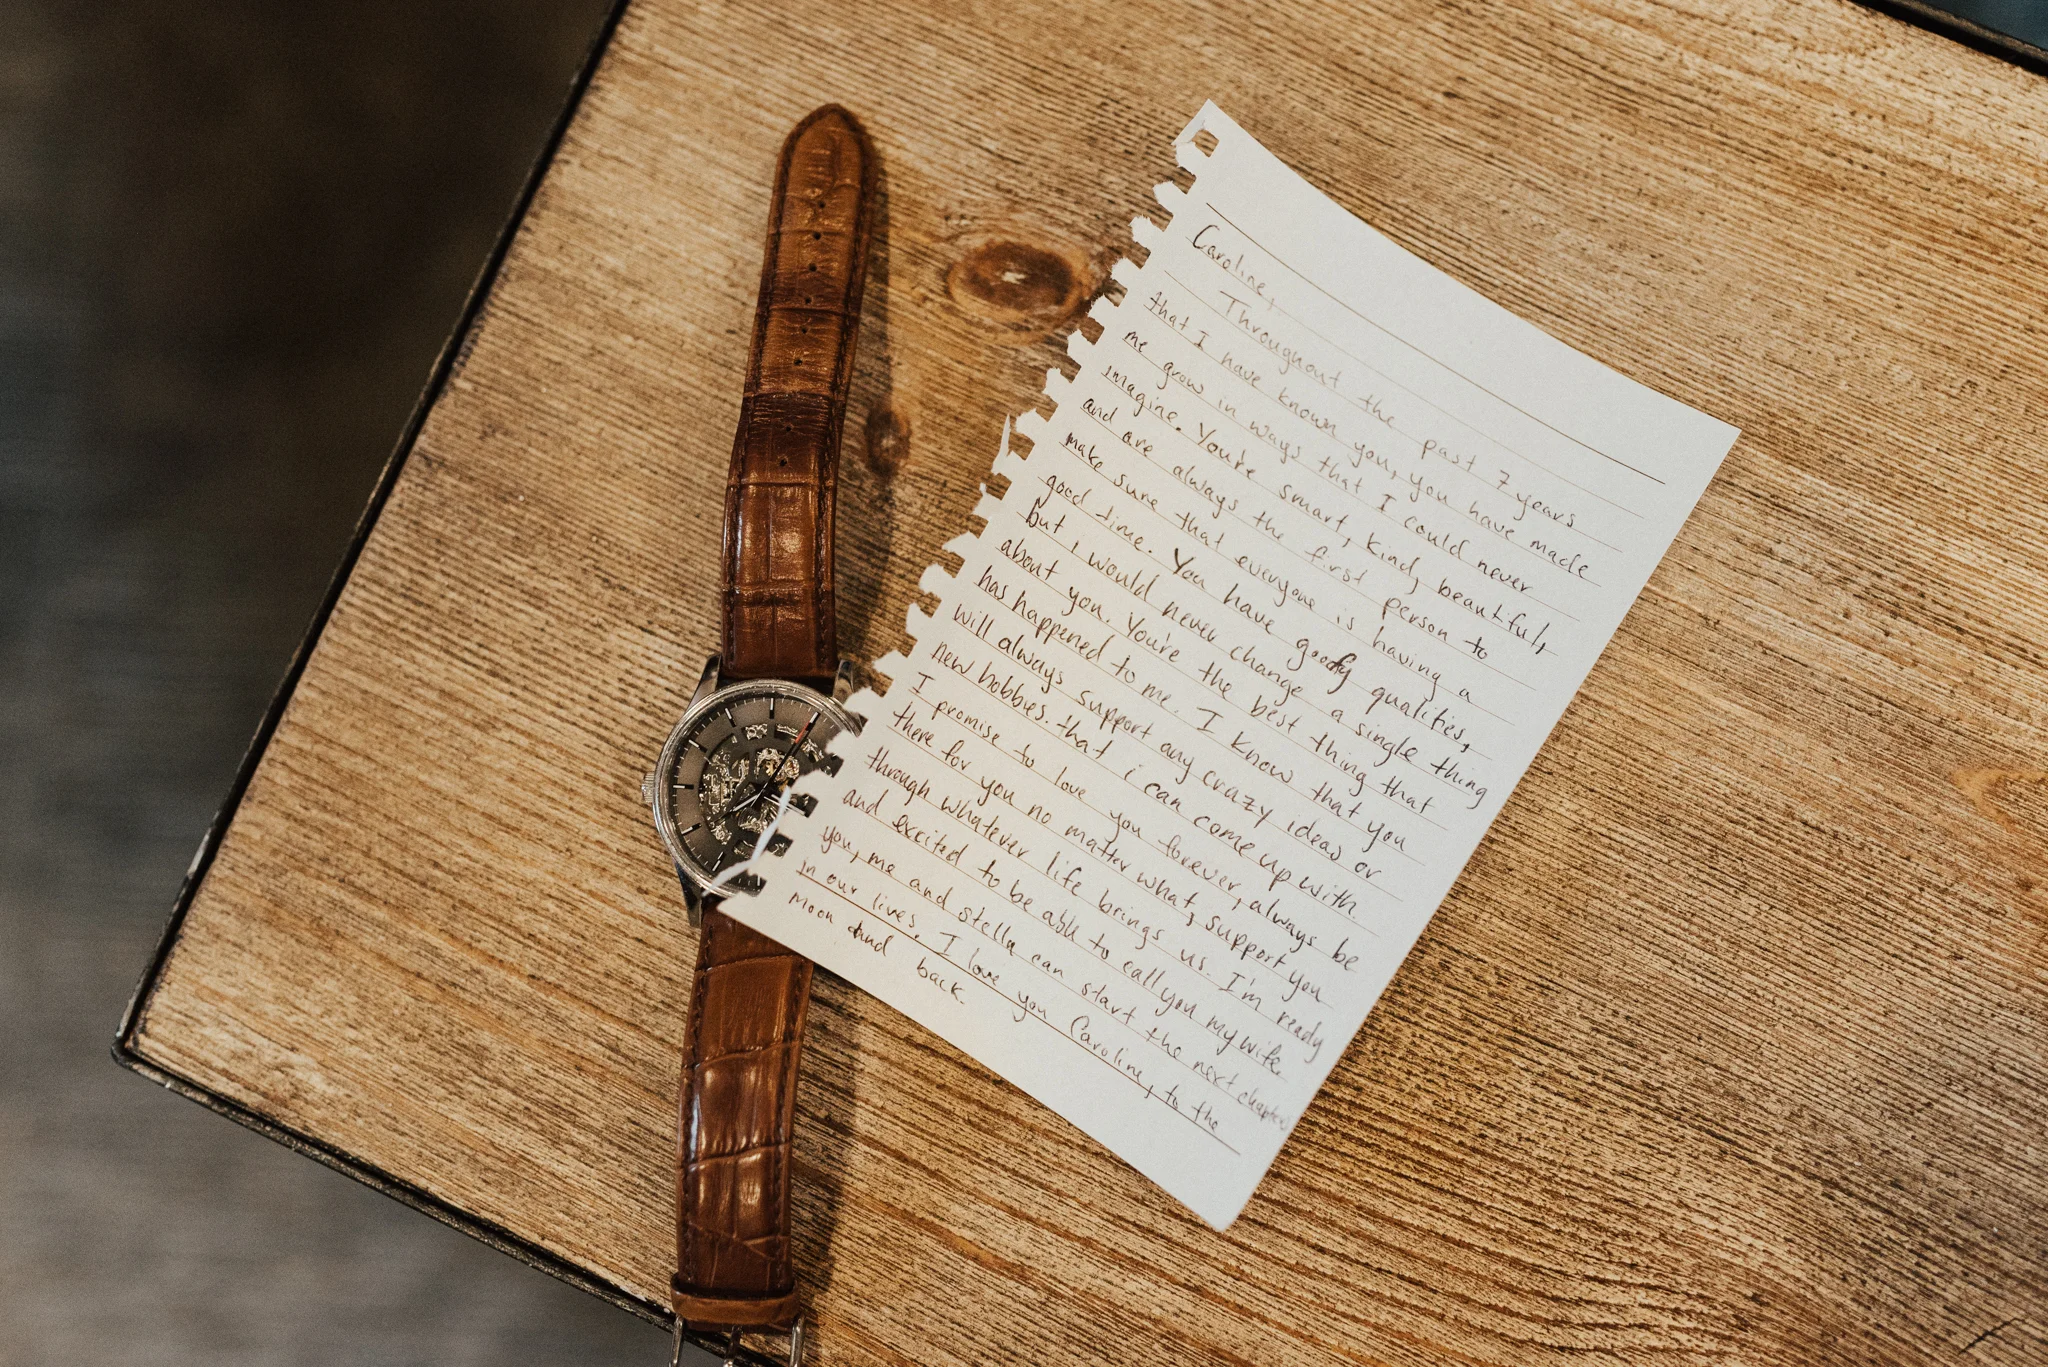 Caroline,
Throughout the past 7 years
that I have known you, you have made
me grow in ways that I could never
imagine. You're smart, kind, beautiful,
and are always the first person to
make sure that everyone is having a
good time. You have goofy qualities,
but i would never change a single thing
about you. You're the best thing that
has happened to me. I know that you
will always support any crazy ideas or
new hobbies. that i can come up with.
I promise to love you forever, always be
there for you no matter what, support you
through whatever life brings us. I'm ready
and excited to be able to call you my wife.
you, me and stella can start the next chapter
in our lives. I love you Caroline, to the
moon and back.